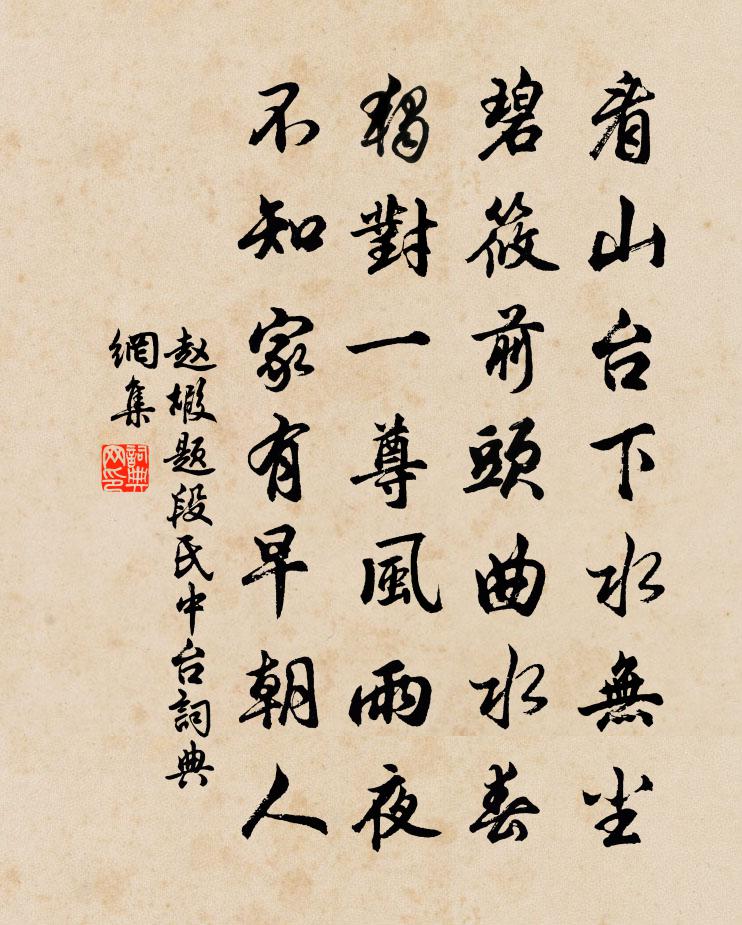 看山台下水無尘
碧筱前頭曲水春
獨對一尊風雨夜
不知家有早朝人
赵嘏题段氏中台詞典
網集
詞典
网印